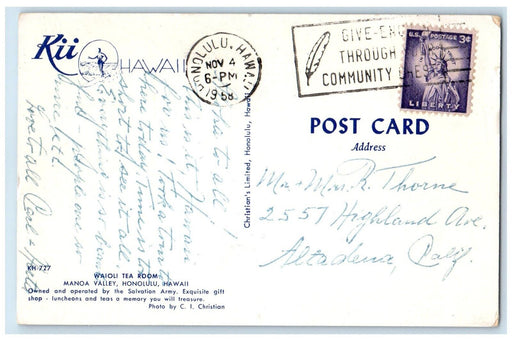 Kii HAWAII
HONOLULU, HAWAII
NOV 4
6-PM
1958
GIVE-
THROUGH
COMMUNITY
U.S. POSTAGE 3¢
LIBERTY
POST CARD
Address
Mr. & Mrs. R. Thorne
2557 Highland Ave.
Altadena, Calif.
Christian's Limited, Honolulu, Hawaii
to all!
This is it, Hawaii
for us! Took a
here today. Time is too
short to see it all.
Everything is so
and people are so
Love to all
KH-727
WAIOLI TEA ROOM
MANOA VALLEY, HONOLULU, HAWAII
Owned and operated by the Salvation Army. Exquisite gift
shop - luncheons and teas a memory you will treasure.
Photo by C. I. Christian